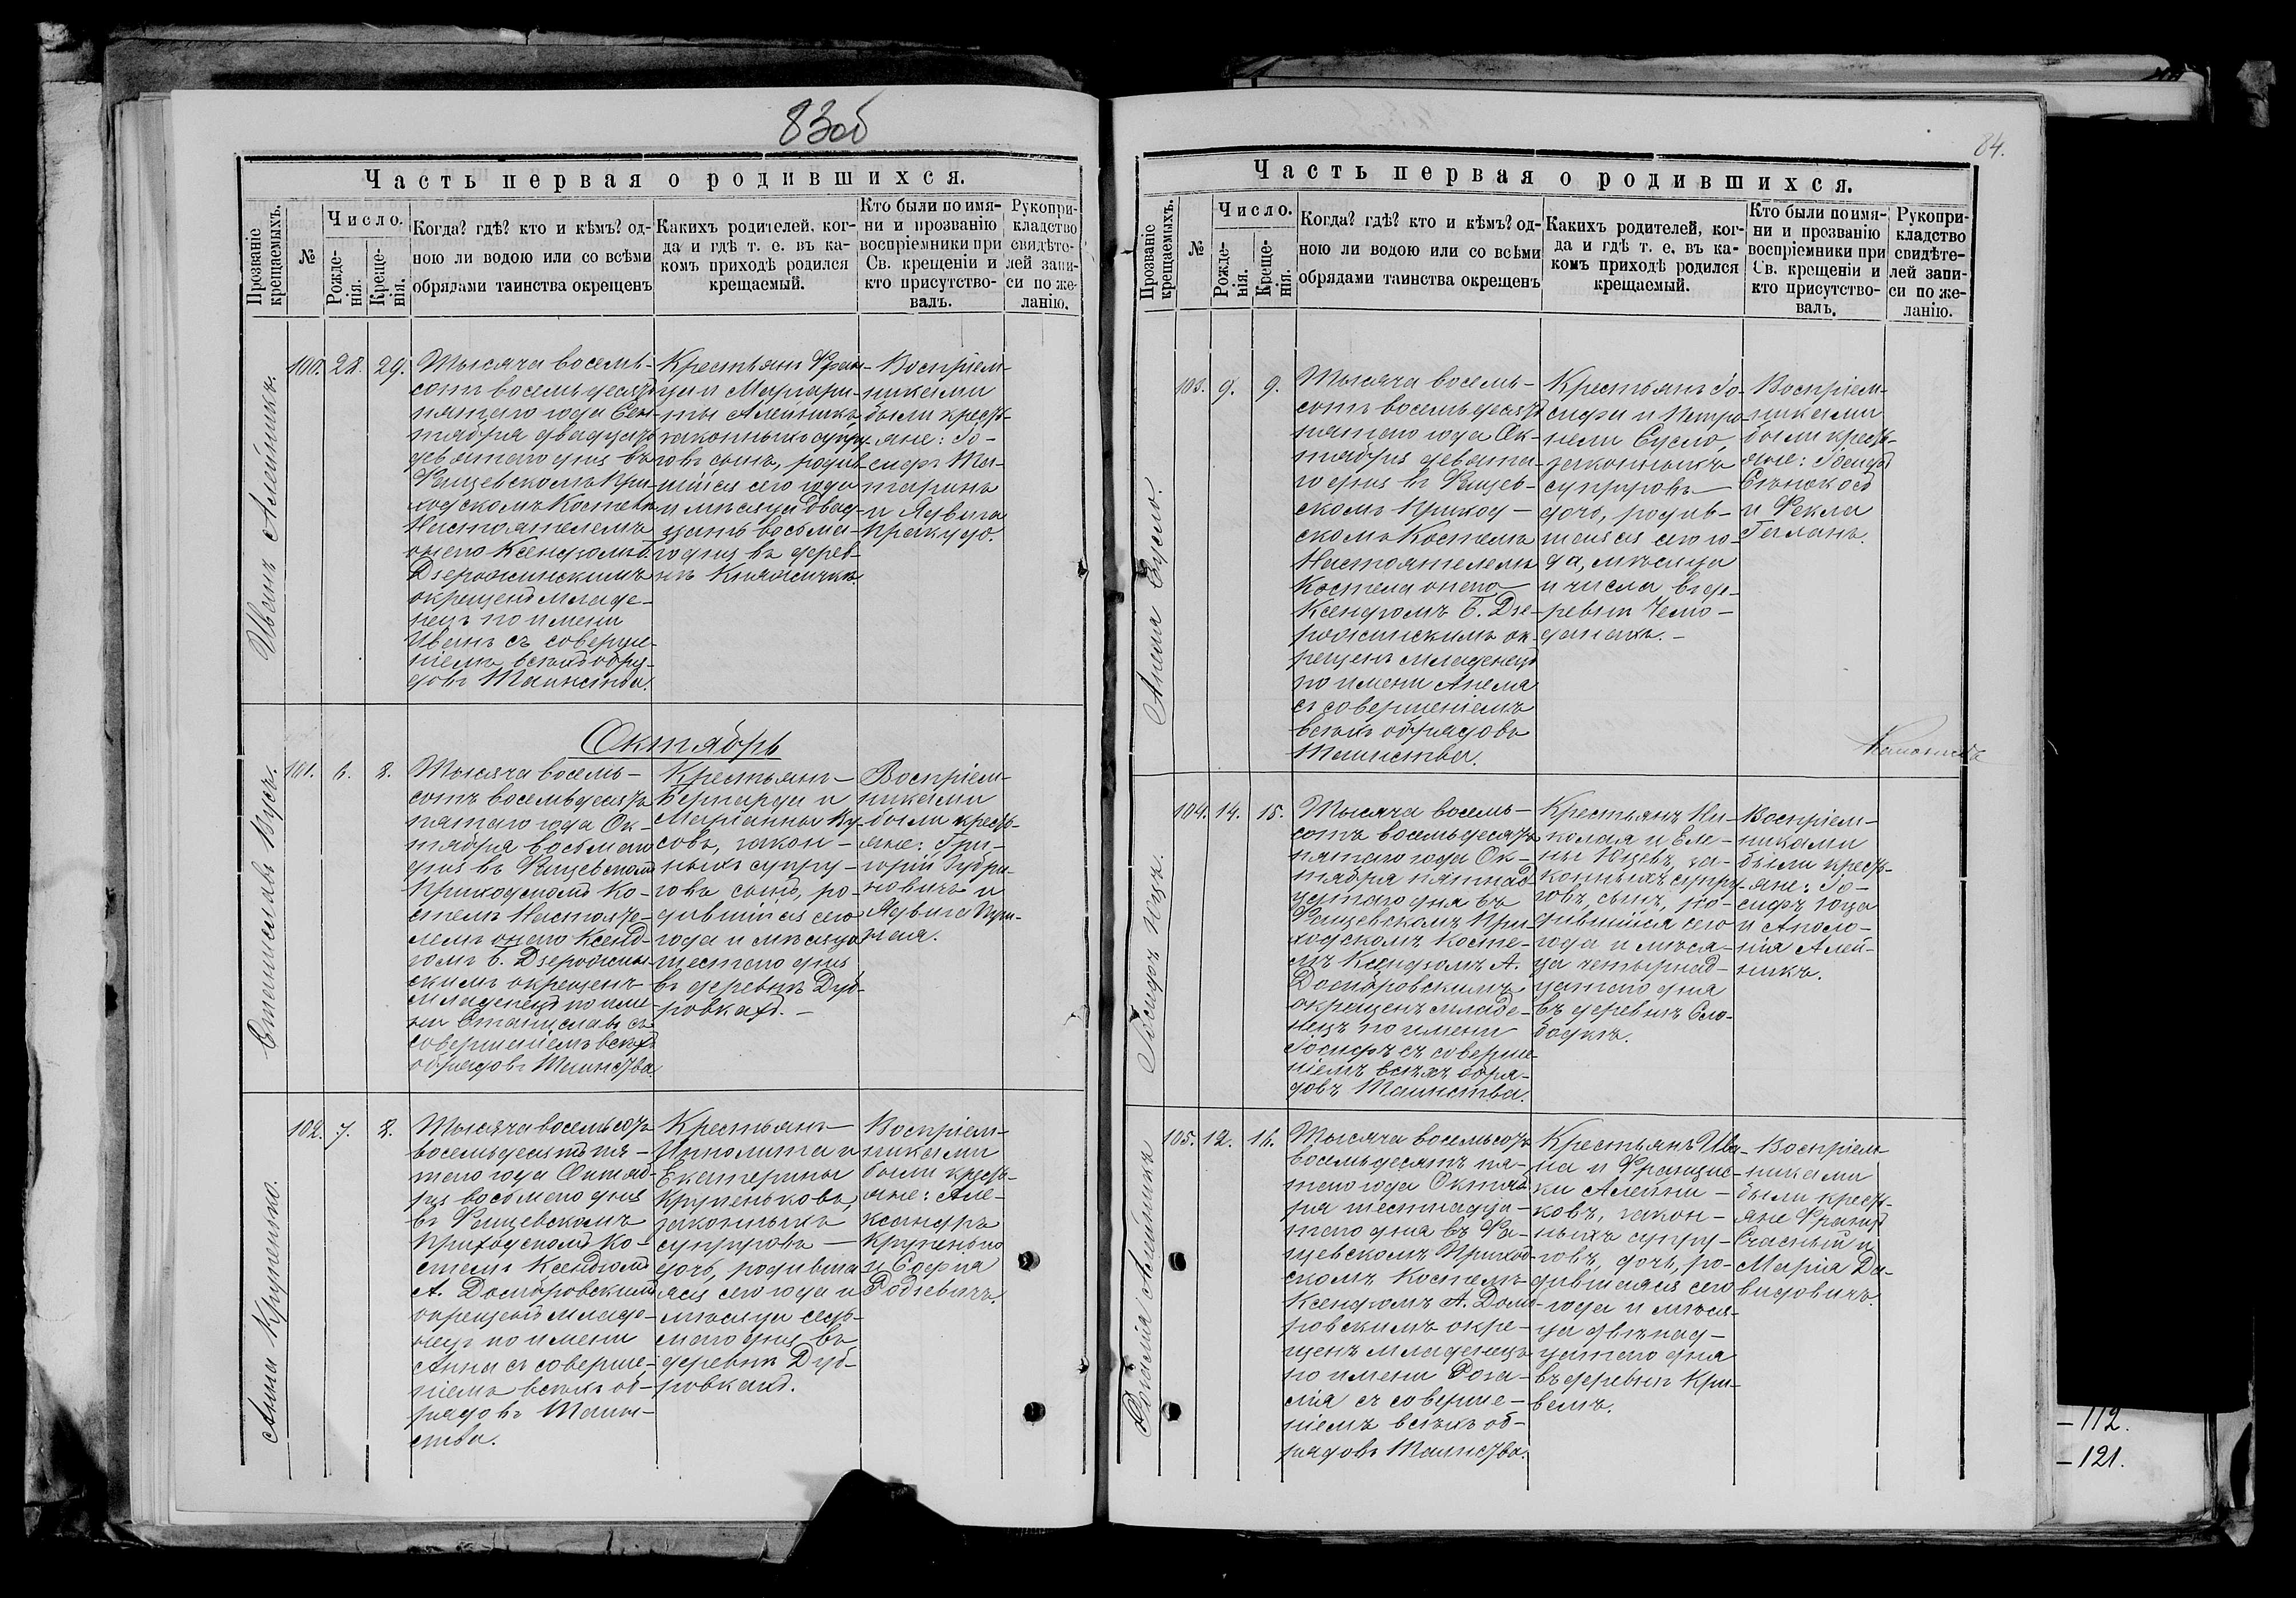 83об
Часть первая о родившихся.
Прозваніе крещаемыхъ.
№
Число.
Рожде-
нія.
Креще-
нія.
Когда? гдѣ? кто и кѣмъ? од-
ною ли водою или со всѣми
обрядами таинства окрещенъ
Какихъ родителей, ког-
да и гдѣ т. е. въ ка-
комъ приходѣ родился
крещаемый.
Кто были по имя-
ни и прозванію
воспріемники при
Св. крещеніи и
кто присутство-
валъ.
Рукопри-
кладство
свидѣте-
лей запи-
си по же-
ланію.
Иванъ Алейникъ.
100. 28. 29.
Тысяча восемь-
сотъ восемьдесятъ
пятаго года Сен-
тября двадцать
девятаго дня въ
Фащевскомъ При-
ходскомъ Костелѣ
Настоятелемъ
онаго Ксендзомъ Б.
Дзерожинскимъ
окрещенъ младе-
нецъ по имени
Иванъ съ соверше-
ніемъ всѣхъ обря-
довъ Таинства.
Крестьянъ Фран-
ца и Маргари-
ты Алейникъ
законныхъ супру-
говъ сынъ, родив-
шійся сего года
и мѣсяца двад-
цать восьма-
го дня въ дерев-
нѣ Княжичкѣ.
Воспріем-
никами
были кресть-
яне: Іо-
сифъ
и Ядвига
Октябрь
Станиславъ Бусъ.
101. 6. 8.
Тысяча восемь-
сотъ восемьдесятъ
пятаго года Ок-
тября восьмаго
дня въ Фащевскомъ
Приходскомъ Ко-
стелѣ Настояте-
лемъ онаго Ксенд-
зомъ Б. Дзерожин-
скимъ окрещенъ
младенецъ по име-
ни Станиславъ съ
совершеніемъ всѣхъ
обрядовъ Таинства
Крестьянъ
Бернарда и
Маріанны Бу-
совъ, закон-
ныхъ супру-
говъ сынъ, ро-
дившійся сего
года и мѣсяца
шестаго дня
въ деревнѣ Дуб-
ровкахъ.
Воспріем-
никами
были кресть-
яне: Гри-
горій
и
Ядвига
Анна Крупенько.
102. 7. 8.
Тысяча восемьсотъ
восемьдесятъ пя-
таго года Октяб-
ря восьмаго дня
въ Фащевскомъ
Приходскомъ Ко-
стелѣ Ксендзомъ
А. Домбровскимъ
окрещенъ младе-
нецъ по имени
Анна съ соверше-
ніемъ всѣхъ об-
рядовъ Таин-
ства.
Крестьянъ
Ипполита и
Екатерины
Крупеньковъ,
законныхъ
супруговъ
дочь, родивша-
яся сего года и
мѣсяца седь-
маго дня въ
деревнѣ Дуб-
ровкахъ.
Воспріем-
никами
были кресть-
яне: Але-
ксандръ
Крупенько
и Софія
Родзевичъ.
84.
Часть первая о родившихся.
Прозваніе крещаемыхъ.
№
Число.
Рожде-
нія.
Креще-
нія.
Когда? гдѣ? кто и кѣмъ? од-
ною ли водою или со всѣми
обрядами таинства окрещенъ
Какихъ родителей, ког-
да и гдѣ т. е. въ ка-
комъ приходѣ родился
крещаемый.
Кто были по имя-
ни и прозванію
воспріемники при
Св. крещеніи и
кто присутство-
валъ.
Рукопри-
кладство
свидѣте-
лей запи-
си по же-
ланію.
Анеля Сусло.
103. 9. 9.
Тысяча восемь-
сотъ восемьдесятъ
пятаго года Ок-
тября девята-
го дня въ Фащев-
скомъ Приход-
скомъ Костелѣ
Настоятелемъ
Костела онаго
Ксендзомъ Б. Дзе-
рожинскимъ ок-
рещенъ младенецъ
по имени Анеля
съ совершеніемъ
всѣхъ обрядовъ
Таинства.
Крестьянъ Іо-
сифа и Петро-
нели Сусло,
законныхъ
супруговъ
дочь, родив-
шаяся сего го-
да, мѣсяца
и числа въ де-
ревнѣ Чемо-
данахъ.
Воспріем-
никами
были кресть-
яне: Іосифъ
и Фекла
Іосифъ Юца.
104. 14. 15.
Тысяча восемь-
сотъ восемьдесятъ
пятаго года Ок-
тября пятнад-
цатаго дня въ
Фащевскомъ При-
ходскомъ Косте-
лѣ Ксендзомъ А.
Домбровскимъ
окрещенъ младе-
нецъ по имени
Іосифъ съ соверше-
ніемъ всѣхъ обря-
довъ Таинства.
Крестьянъ Ни-
колая и Еле-
ны Юцевъ, за-
конныхъ супру-
говъ, сынъ, ро-
дившійся сего
года и мѣся-
ца четырнад-
цатаго дня
въ деревнѣ Сло-
бодкѣ.
Воспріем-
никами
были кресть-
яне: Іо-
сифъ Юца
и Аполо-
нія Алей-
никъ.
Розалія Алейникъ
105. 12. 16.
Тысяча восемьсотъ
восемьдесятъ пя-
таго года Октяб-
ря шестнадца-
таго дня въ Фа-
щевскомъ Приход-
скомъ Костелѣ
Ксендзомъ А. Домб-
ровскимъ окре-
щенъ младенецъ
по имени Роза-
лія съ соверше-
ніемъ всѣхъ об-
рядовъ Таинства.
Крестьянъ Ива-
на и Францис-
ки Алейни-
ковъ, закон-
ныхъ супру-
говъ, дочь, ро-
дившаяся сего
года и мѣся-
ца двѣнад-
цатаго дня
въ деревнѣ Кри-
велѣ.
Воспріем-
никами
были кресть-
яне Францъ
Счасный и
Марія Да-
видовичъ.
– 112.
– 121.